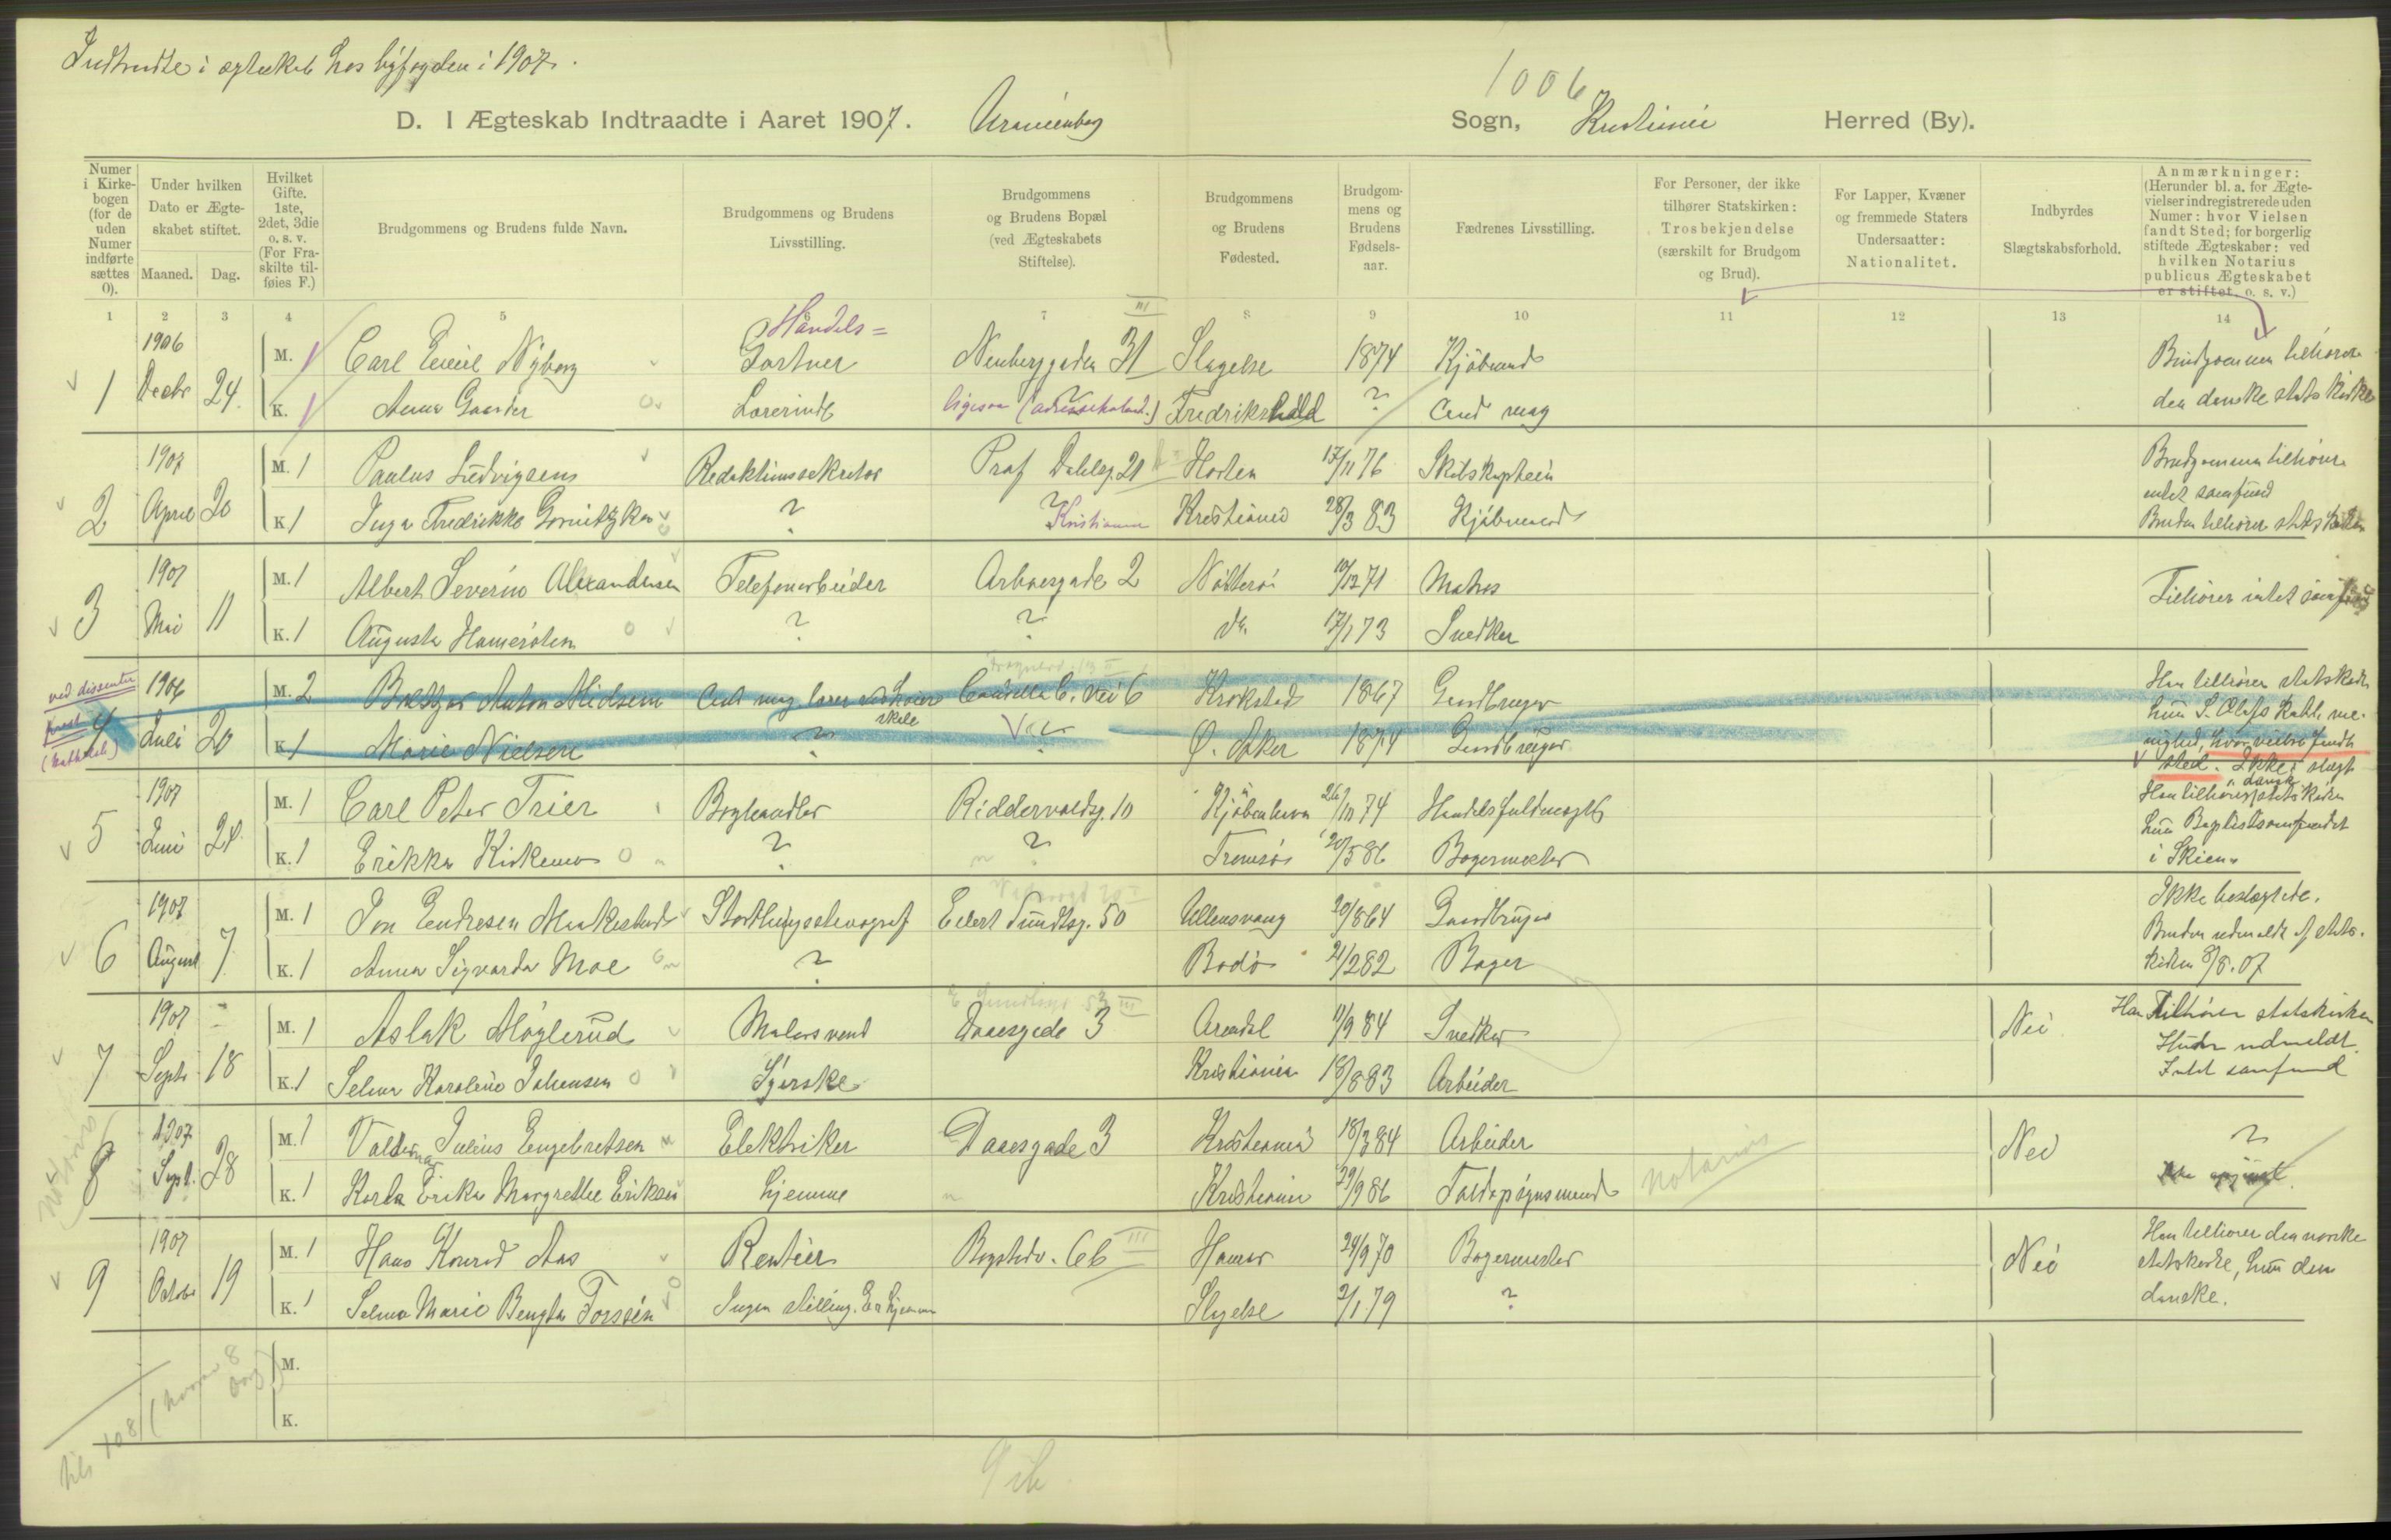 Indtrådte i ægteskab hos byfogden i 1907.
1006
D. I Ægteskab Indtraadte i Aaret 1907. Uranienborg Sogn, Kristiania Herred (By).
Numer i Kirkebogen (for de uden Numer indførte sættes 0).
Under hvilken Dato er Ægteskabet stiftet.
Maaned. Dag.
Hvilket Gifte. 1ste, 2det, 3die o. s. v. (For Fraskilte tilføies F.)
Brudgommens og Brudens fulde Navn.
Brudgommens og Brudens Livsstilling.
Brudgommens og Brudens Bopæl (ved Ægteskabets Stiftelse).
Brudgommens og Brudens Fødested.
Brudgommens og Brudens Fødselsaar.
Fædrenes Livsstilling.
For Personer, der ikke tilhører Statskirken: Trosbekjendelse (særskilt for Brudgom og Brud).
For Lapper, Kvæner og fremmede Staters Undersaatter: Nationalitet.
Indbyrdes Slægtskabsforhold.
Anmærkninger: (Herunder bl. a. for Ægtevielser indregistrerede uden Numer: hvor Vielsen fandt Sted; for borgerlig stiftede Ægteskaber: ved hvilken Notarius publicus Ægteskabet er stiftet, o. s. v.)
1 2 3 4 5 6 7 8 9 10 11 12 13 14
1 1906 Decbr 24. M. 1 Carl Emil Nyborg Handels= Gartner Neuberggaden 31 III Slagelse 1874 Kjøbmand Brudgommen tilhører
K. 1 Anna Gaarder Lærerinde ligesaa Fredrikshald ? Cand mag den danske statskirke
2 1907 April 20 M. 1 Paulus Ludvigsens Redaktionssekretær Prof Dahlsg. 21 Horten 17/11 76 Skibskaptein Brudgommen tilhører intet samfund
K 1 Inga Fredrikke Gornitzka ? ? Kristiania Kristiania 28/3 83 Kjøbmand Bruden tilhører statskirken
3 1907 Mai 11 M. 1 Albert Severin Alexandersen Telefonarbeider Arbosgade 2 Nøtterøi 10/12 71 Matros Tilhører intet samfund
K. 1 Augusta Hanersten ? ? do. 17/1 73 Snedker
ved dissenter
prest
(katholsk)
4 1906 Juli 20 M. 2 Anton Midsem Cand mag lærer ved høiere skole Camilla C. vei 6 Krokstad 1867 Gaardbruger Han tilhører statskirken
K 1 Marie Nielsen ? ? Ø. Aker 1874 Gaardbruger hun S. Olafs kath. menighed, hvor vielse fandt sted. Ikke i slægt
5 1907 Juni 24. M. 1 Carl Peter Trier Boghandler Riddervoldsg. 10 Kjøbenhavn 26/11 74 Handelsfuldmægtig Han tilhører dansk statskirken
K. 1 Erikka Kirkemo ? ? Tromsø 20/5 86 Bagermester hun Baptistsamfundet i Skien
6 1907 August 7 M. 1 Jon Endresen Maakestad Storthingsstenograf Eilert Sundtsg. 50 Ullensvang 20/8 64 Gaardbruger Ikke beslægtede.
K. 1 Anna Sigvarda Moe ? Bodø 21/2 82 Bager Bruden udmeldt af statskirken 3/8. 07
7 1907 Septr 18 M. 1 Aslak Møglerud Malersvend Daasgade 3 Arendal 11/9 84 Snedker Nei Han tilhører statskirken
K. 1 Selma Karoline Johansen Syerske Kristiania 18/8 83 Arbeider Hun er udmeldt. Intet samfund
8 1907 Sept. 28 M. 1 Valdemar Julius Engebretsen Elektriker Daasgade 3 Kristiania 18/3 84 Arbeider Nei ?
K. 1 Karla Erika Margrethe Eriksen hjemme Kristiania 29/9 86 Toldopsynsmand notarius
9 1907 October 19 M. 1 Hans Konrad Aas Rentier Bogstadv. 66 III Hamar 24/9 70 Bagermester Nei Han tilhører den norske
K. 1 Selma Marie Bengta Forssén Ingen stilling. Er hjemme Slagelse 2/1 79 ? statskirke, hun den danske.
M.
K.
9 ib.